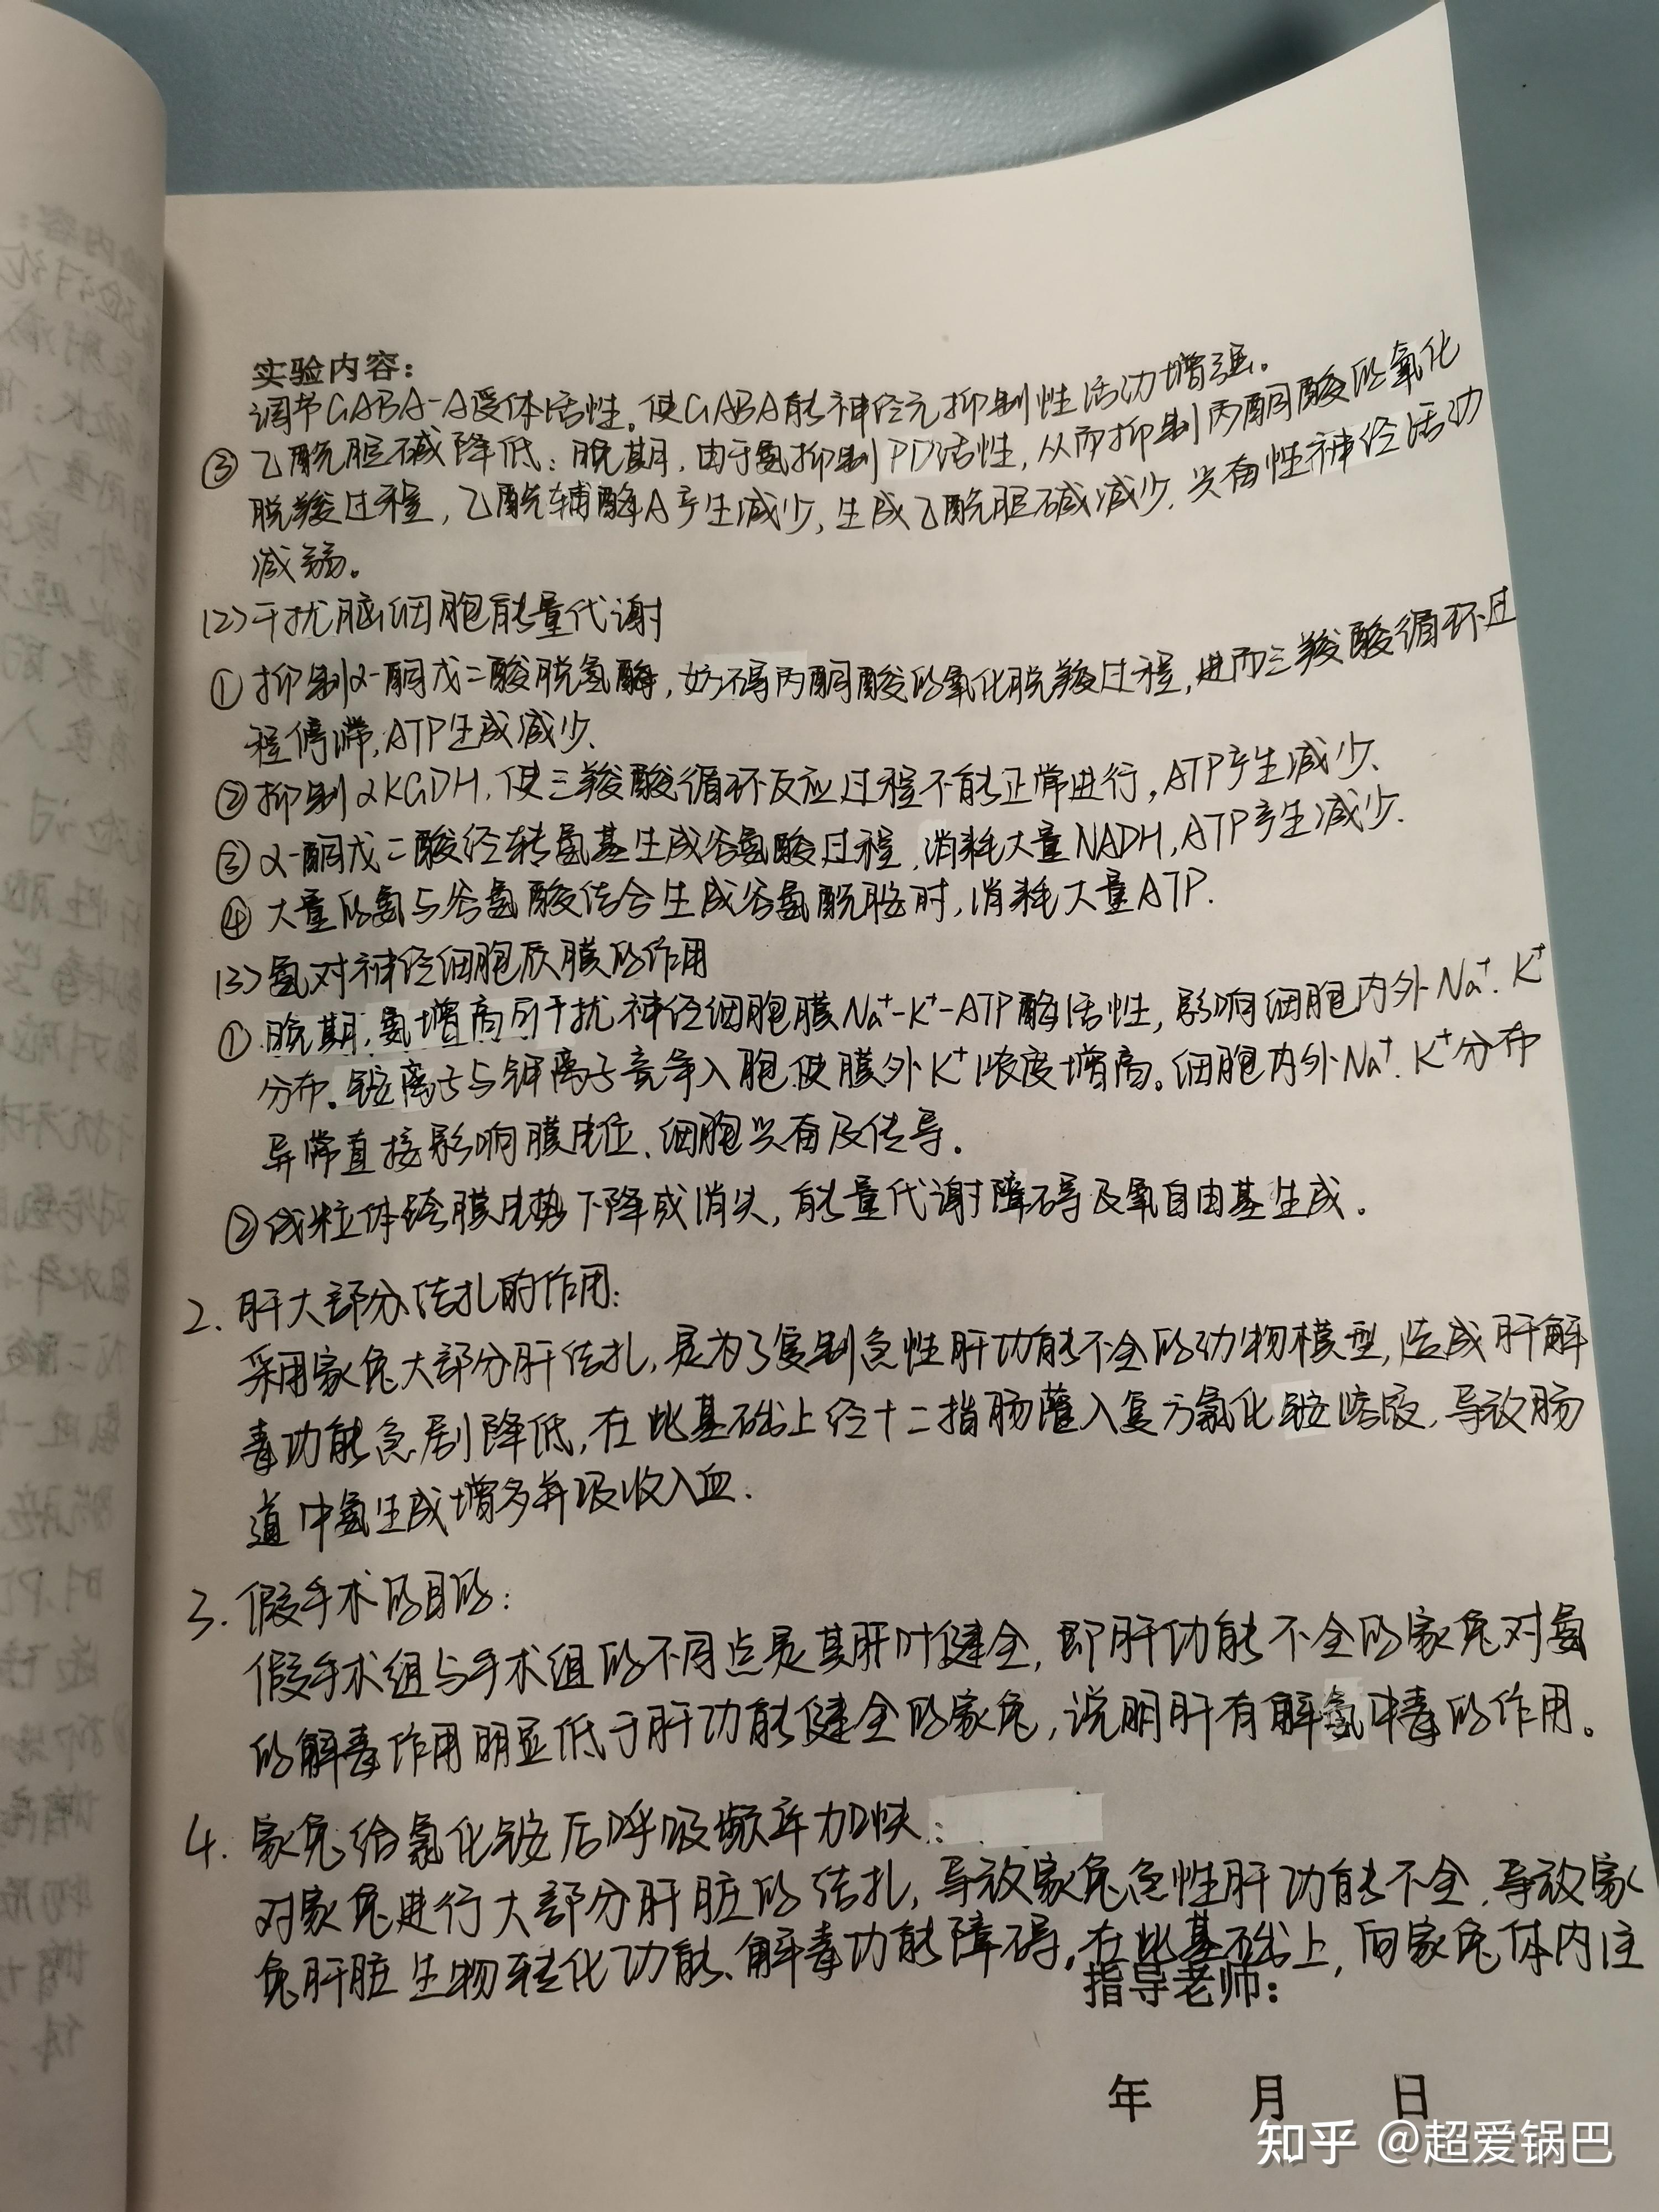 实验内容：
调节GABA-A受体活性。使GABA能神经元抑制性活动增强。
③ 乙酰胆碱降低：脱期，由于氨抑制PD活性，从而抑制丙酮酸的氧化
脱羧过程，乙酰辅酶A产生减少，生成乙酰胆碱减少，兴奋性神经活动
减弱。
(2)干扰脑细胞能量代谢
① 抑制α-酮戊二酸脱氢酶，妨碍丙酮酸的氧化脱羧过程，进而三羧酸循环过
程停滞，ATP生成减少、
② 抑制αKGDH，使三羧酸循环反应过程不能正常进行，ATP产生减少、
③ α-酮戊二酸经转氨基生成谷氨酸过程，消耗大量NADH，ATP产生减少.
④ 大量的氨与谷氨酸结合生成谷氨酰胺时，消耗大量ATP.
(3)氨对神经细胞质膜的作用
① 脱期，氨增高所干扰神经细胞膜Na⁺-K⁺-ATP酶活性，影响细胞内外Na⁺.K⁺
分布。铵离子与钾离子竞争入胞,使膜外K⁺浓度增高。细胞内外Na⁺.K⁺分布
异常直接影响膜电位、细胞兴奋及传导。
② 线粒体跨膜电势下降或消失，能量代谢障碍及氧自由基生成。
2. 肝大部分结扎的作用：
采用家兔大部分肝结扎，是为了复制急性肝功能不全的动物模型，造成肝解
毒功能急剧降低，在此基础上经十二指肠灌入复方氯化铵溶液，导致肠
道中氨生成增多并吸收入血.
3. 假手术的目的：
假手术组与手术组的不同点是其肝叶健全，即肝功能不全的家兔对氨
的解毒作用明显低于肝功能健全的家兔，说明肝有解氨中毒的作用。
4. 家兔给氯化铵后呼吸频率加快：
对家兔进行大部分肝脏的结扎，导致家兔急性肝功能不全，导致家
兔肝脏生物转化功能、解毒功能障碍。在此基础上，向家兔体内注
指导老师：
年 月 日
知乎 @超爱锅巴